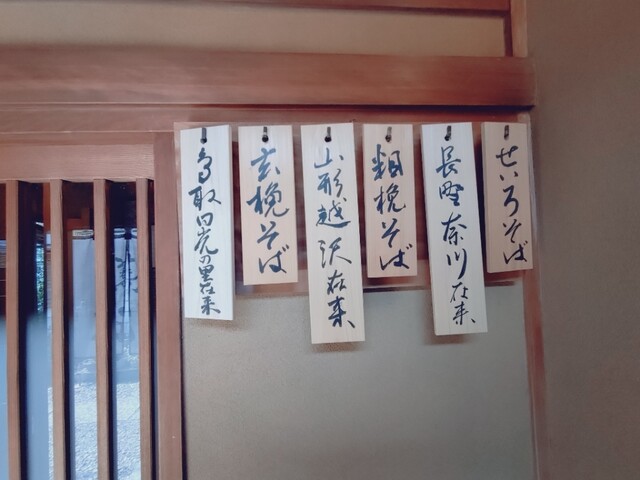 せいろそば
長野奈川在来、
粗挽そば
山形越沢在来、
玄挽そば
鳥取日光の里在来